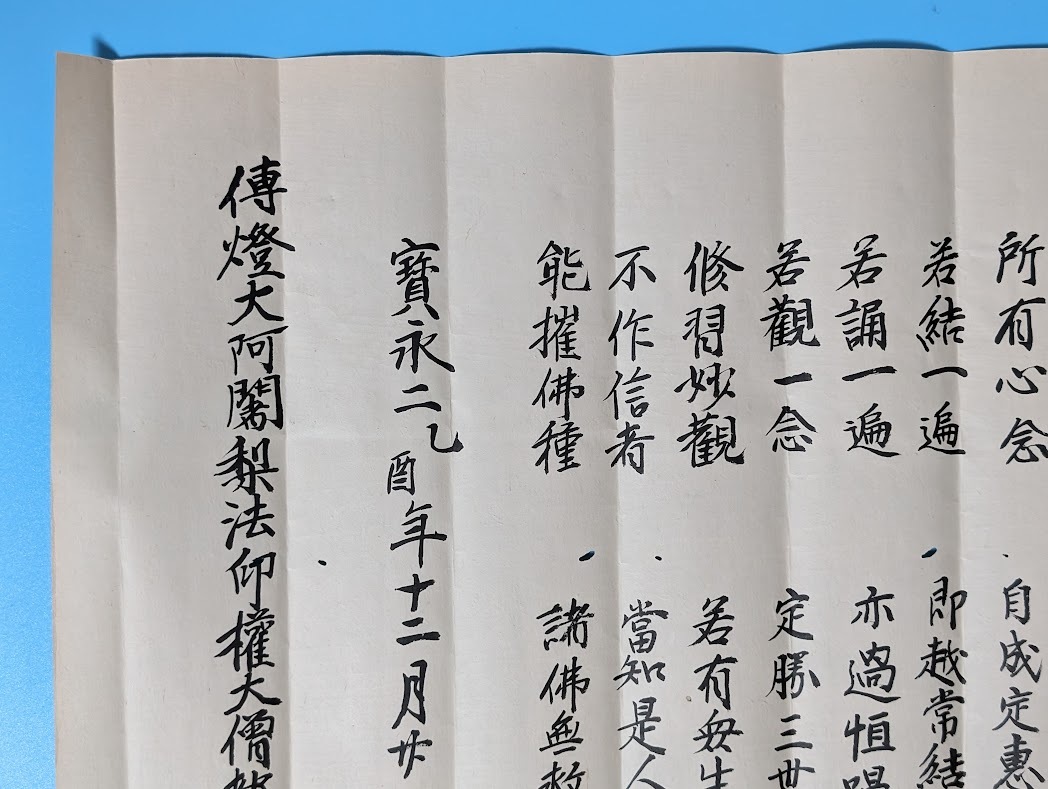 所有心念 自成定惠
若結一遍 即越常結
若誦一遍 亦過恒唱
若觀一念 定勝三世
修習妙觀 若有衆生
不作信者 當知是人
能摧佛種 諸佛無救
寶永二乙酉年十二月廿
傳燈大阿闍梨法印權大僧都